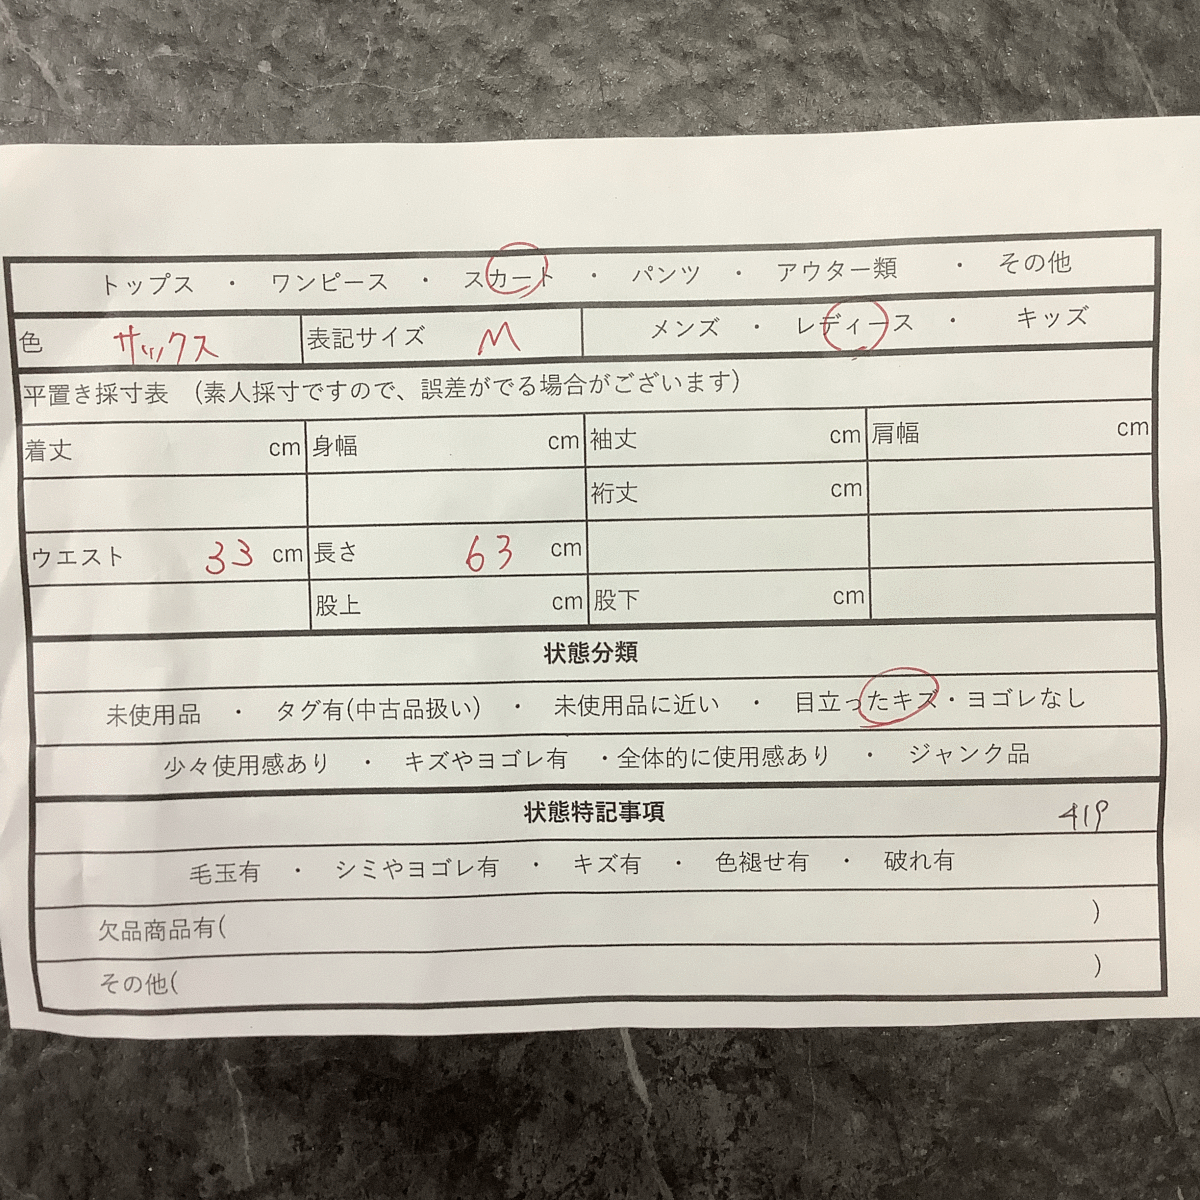 トップス ・ ワンピース ・ スカート ・ パンツ ・ アウター類 ・ その他
色 サックス 表記サイズ M メンズ ・ レディース ・ キッズ
平置き採寸表 (素人採寸ですので、誤差がでる場合がございます)
着丈 cm 身幅 cm 袖丈 cm 肩幅 cm
裄丈 cm
ウエスト 33 cm 長さ 63 cm
股上 cm 股下 cm
状態分類
未使用品 ・ タグ有(中古品扱い) ・ 未使用品に近い ・ 目立ったキズ・ヨゴレなし
少々使用感あり ・ キズやヨゴレ有 ・全体的に使用感あり ・ ジャンク品
状態特記事項 419
毛玉有 ・ シミやヨゴレ有 ・ キズ有 ・ 色褪せ有 ・ 破れ有
欠品商品有( )
その他( )